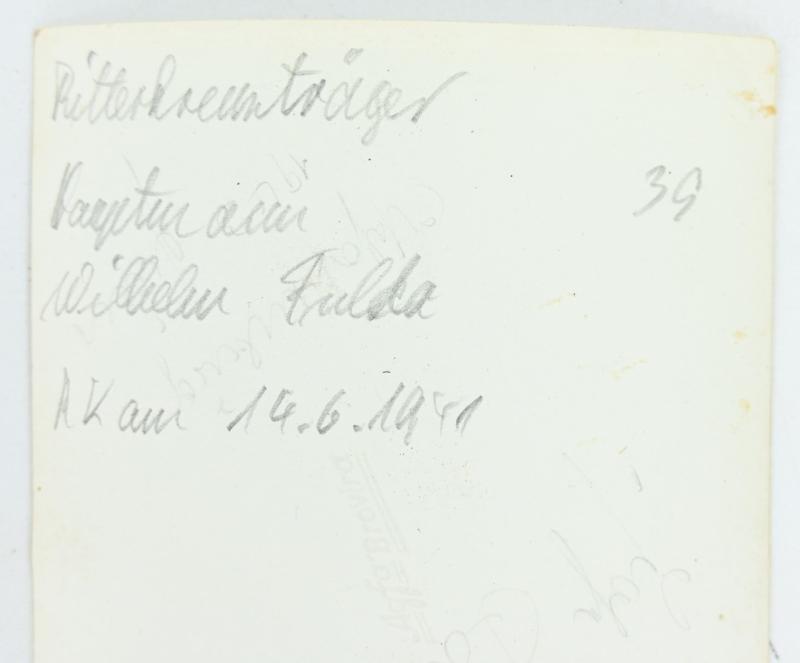 Ritterkreuzträger
Hauptmann
39
Wilhelm Fulda
RK am 14.6.1941
Agfa Brovira